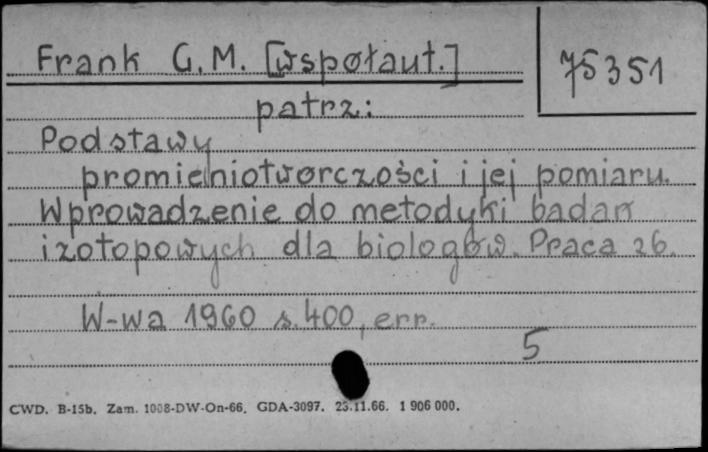 Frank G.M. [współaut.]
75351
patrz:
Podstawy
promieniotwórczości i jej pomiaru.
Wprowadzenie do metodyki badań
izotopowych dla biologów. Praca zb.
W-wa 1960 s. 400, err.
5
CWD. B-15b. Zam. 1008-DW-On-66. GDA-3097. 23.11.66. 1 906 000.